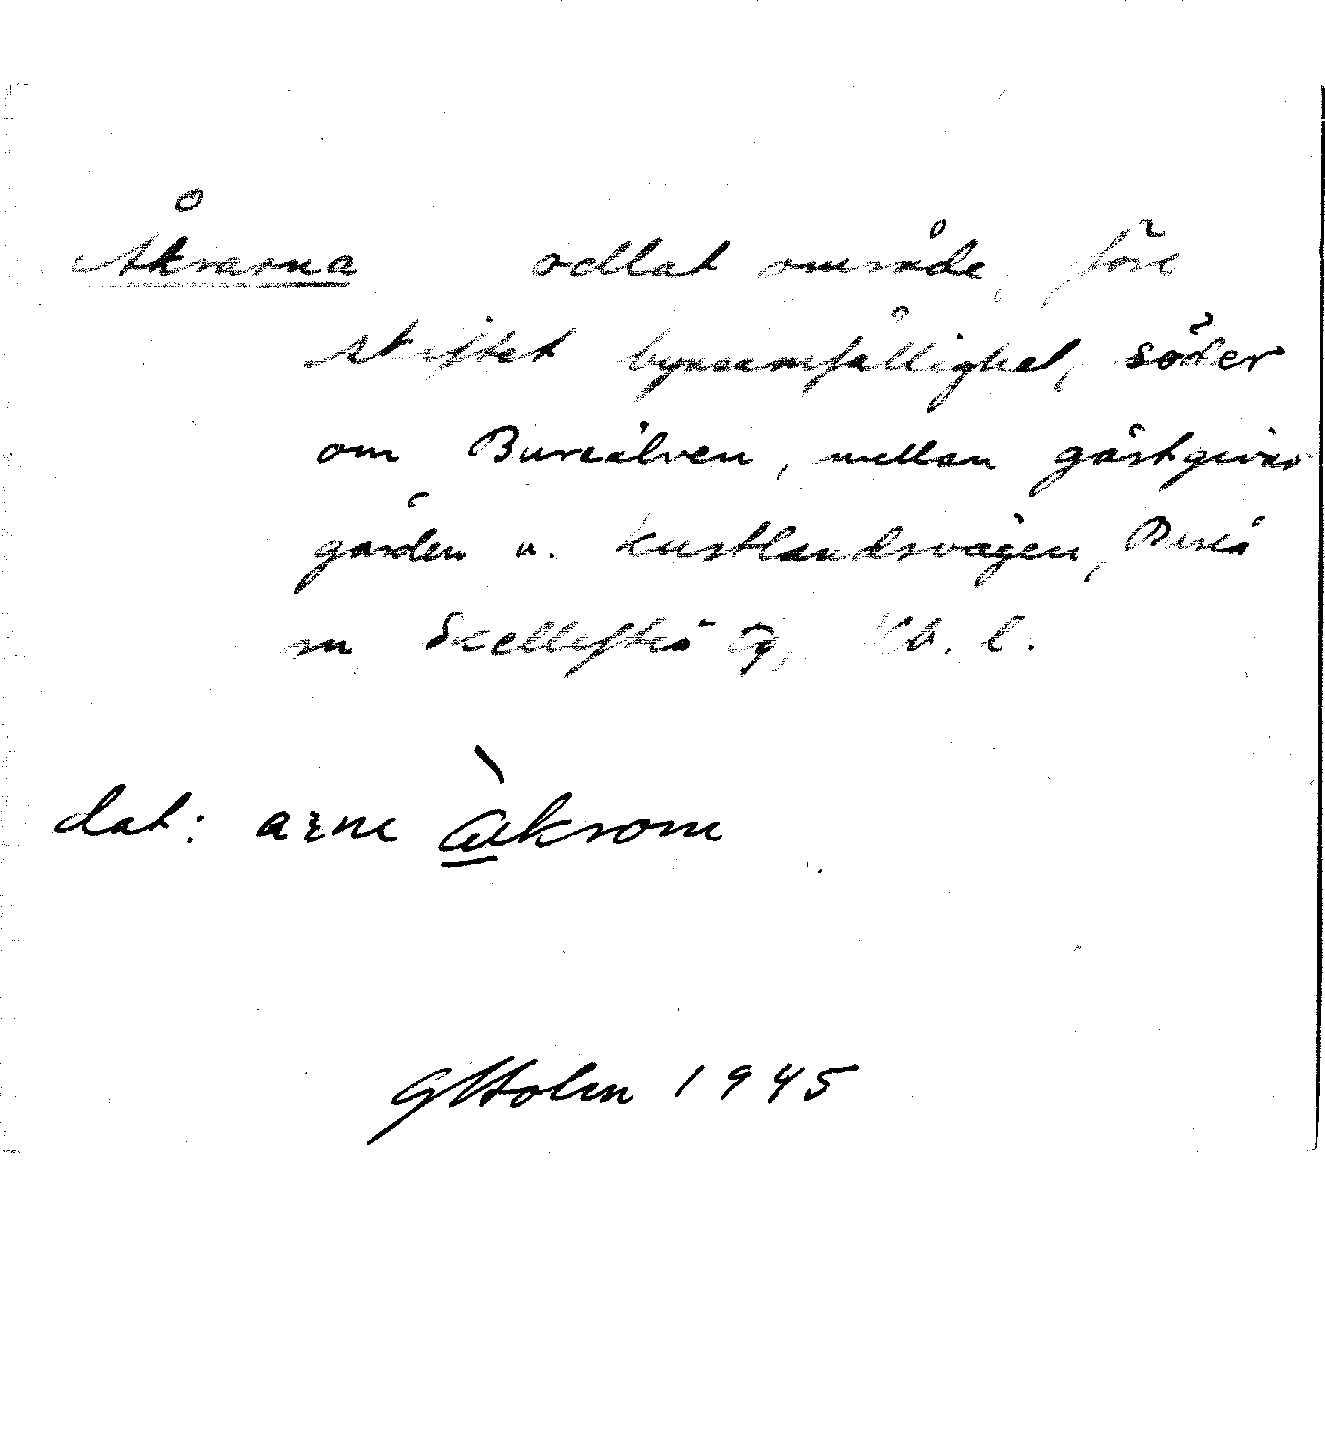 Åkrarna odlat område, före
skiftet bysamfällighet, söder
om Bureälven, mellan gästgivar
gården o. kustlandsvägen, Bureå
sn Skellefteå Vb. l.
dat: arne åkrarna
GHolm 1945